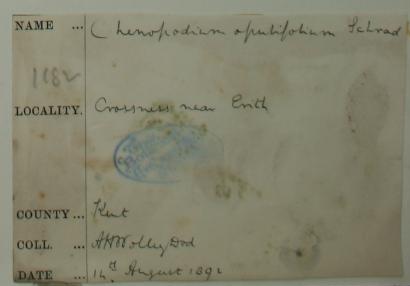 NAME ... Chenopodium opulifolium Schrad
1182
LOCALITY. Crossness near Erith
COUNTY ... Kent
COLL. ... AHWolley Dod
DATE ... 14th August 1892